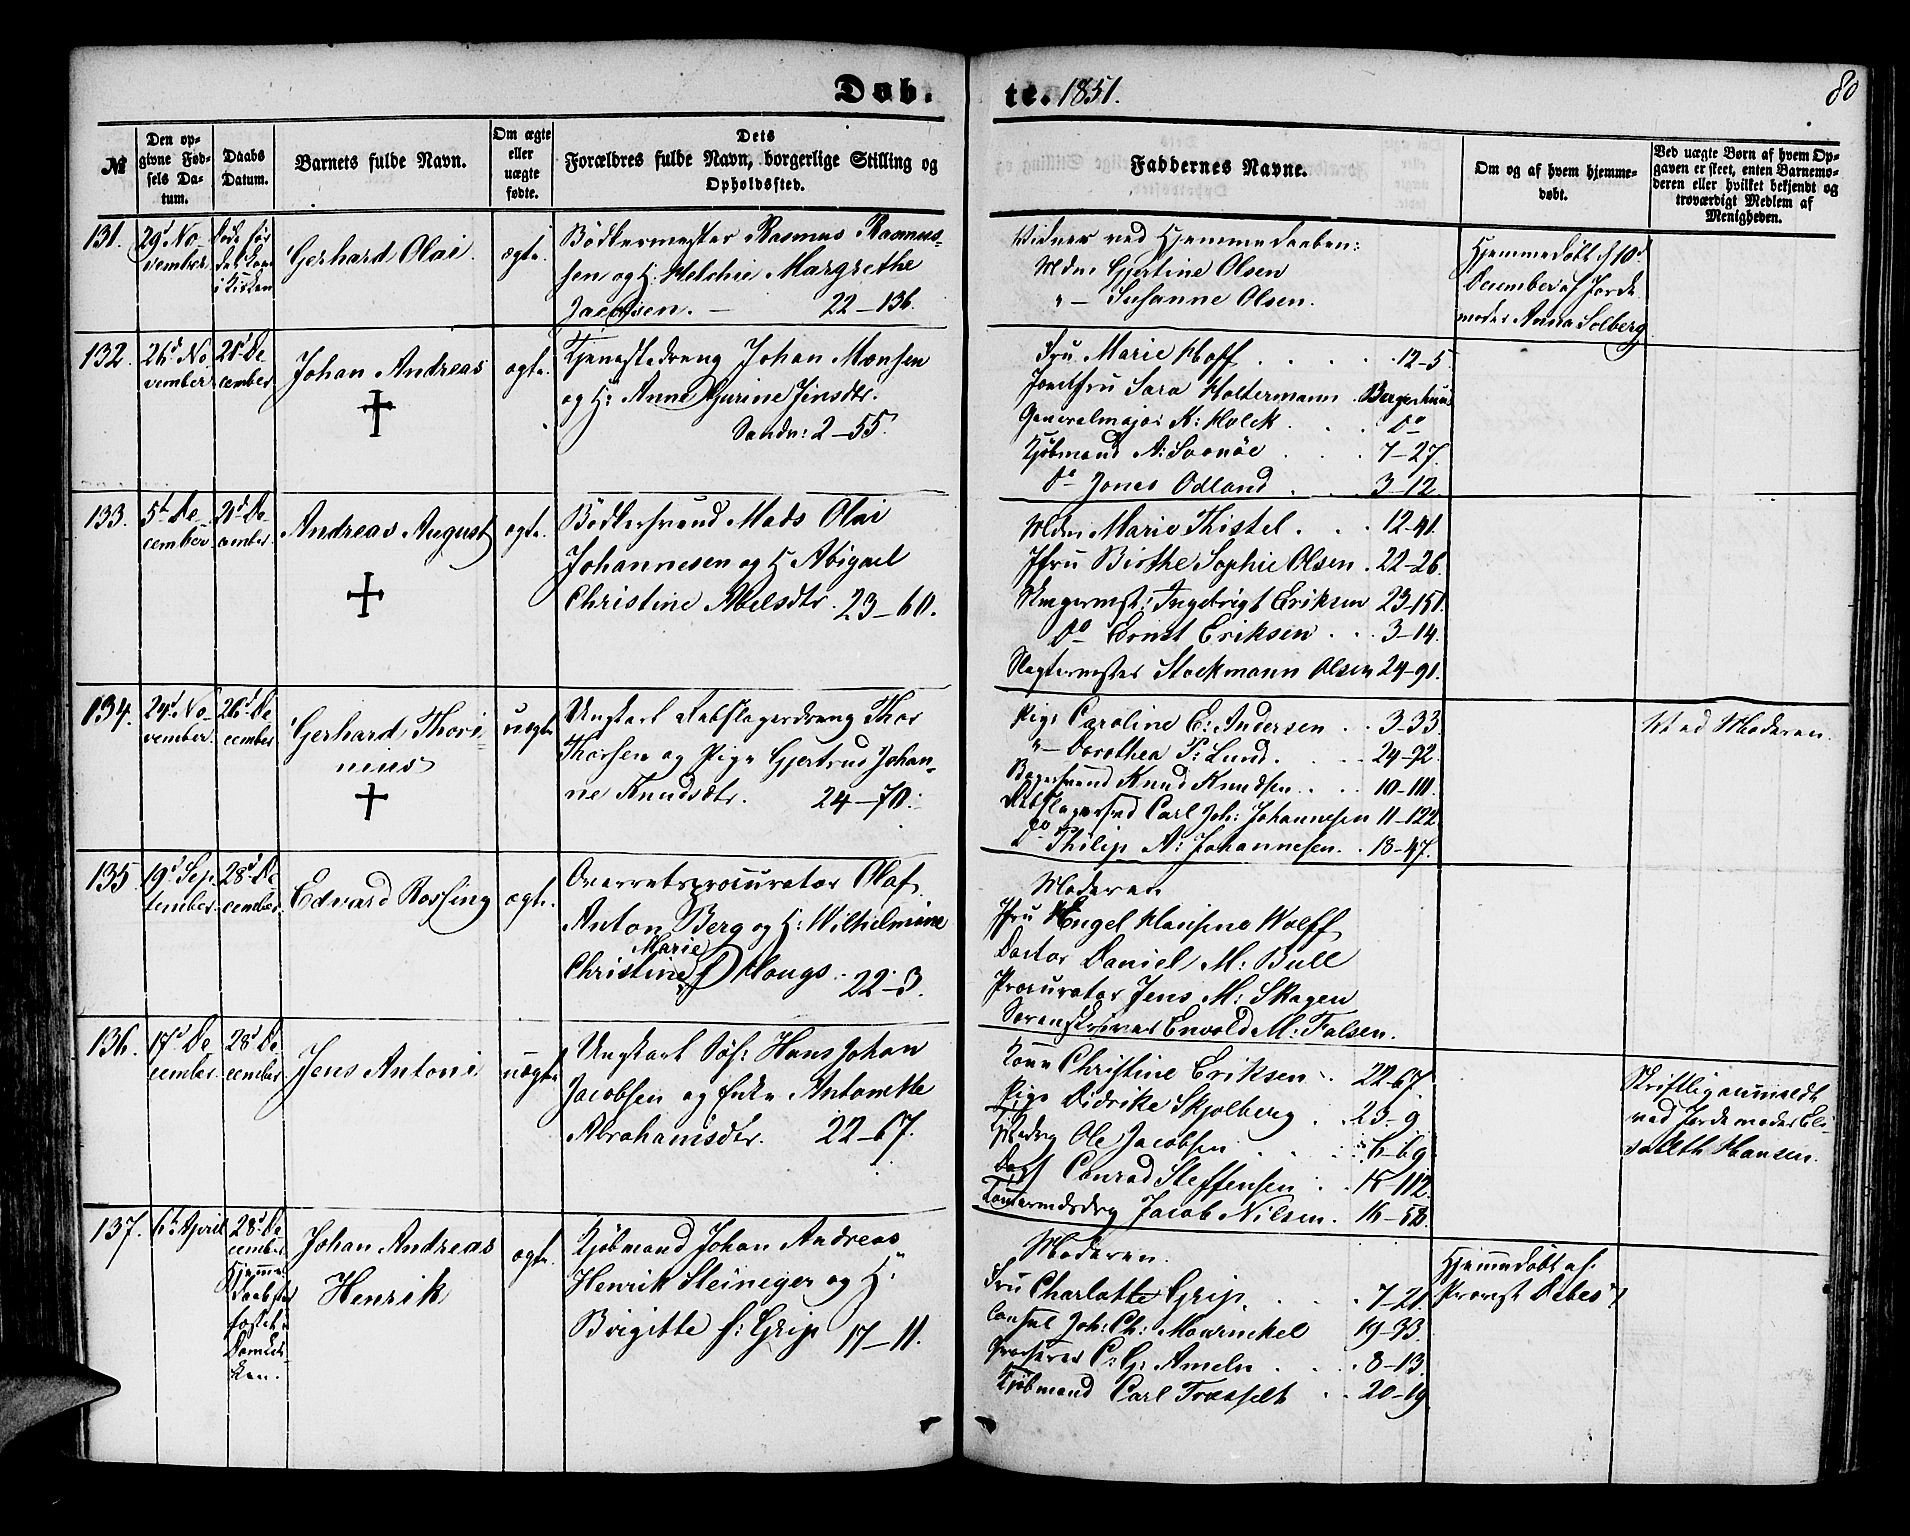 Døb-
te. 1851.
80
№
Den op-
givne Fød-
sels Da-
tum.
Daabs
Datum.
Barnets fulde Navn.
Om ægte
eller
uægte
fødte.
Dets
Forældres fulde Navn, borgerlige Stilling og
Opholdssted.
Faddernes Navne.
Om og af hvem hjemme-
døbt.
Ved uægte Børn af hvem Op-
gaven er skeet, enten Barnemo-
deren eller hvilket bekjendt og
troværdigt Medlem af
Menigheden.
131.
29d No-
vember
Døde før
det kom
i Kirken
Gerhard Olai.
ægte.
Bødkermester Rasmus Rasmus-
sen og H: Melchie Margrethe
Jacobsen. — 22-136.
Vidner ved Hjemmedaaben:
Mdm Gjertine Olsen
" — Susanne Olsen.
Hjemmedøbt d 10d
December af Jorde
moder Anna Solberg
132.
26d No
vember
21d De
cember
Johan Andreas
ægte.
Tjenestedreng Johan Monsen
og H: Anne Gurine Jensdtr.
Sandv: 2-55.
Fru Marie Hoff . . . 12-5
Jomfru Sara Holtermann . Bergenhuus
Generalmajor K: Holck . . . Do
Kjøbmand A: Svanöe . . 7-27.
Do Jonas Odland . . 3-12
133.
5te De
cember
21d De-
cember
Andreas August
ægte.
Bødkersvend Mads Olai
Johannesen og H Abigael
Christine Abelsdtr. 23-60.
Mdm Marie Thistel . . 12-41.
Jfru Birthe Sophie Olsen . 22-26.
Ingebrigt Eriksen 23-151.
Do Ernst Eriksen . . 3-14.
Slagtermester Stockmann Olsen 24-91.
134.
24d No-
vember
26d De
cember
Gerhard Thori-
nius
uægte
Ungkarl Rebslagerdreng Thor
Thorsen og Pige Gjertrud Johan-
ne Knudsdtr. 24-70.
Pige Caroline E: Andersen . . 3-33.
"— Dorothea P: Lund. . . 24-92
Bagersvend Knud Knudsen . . 10-10.
Rebslagersvd Carl Joh: Johannesen 11-122
Do Philip A: Johannesen. . 18-47.
Ved Moderen.
135
19d Sep-
tember
28d De
cember
Edvard Rossing
ægte.
Overretsprocurator Olaf
Anton Berg og H: Wilhelmine
Marie
Christine f Hougs. 22-3.
Moderen
Jfru Engel Hansine Wolff
Doctor Daniel M: Bull
Procurator Jens M: Skagen
Sorenskriver Envold M: Falsen.
136.
17d De
cember
28d De
cember
Jens Antoni
uægte
Ungkarl Søf: Hans Johan
Jacobsen og Enke Antonette
Abrahamsdtr. 22-67.
Kone Christine Eriksen . 22-67.
Pige Didrike Skjolberg . 23-9
Ole Jacobsen . . . 6-69
Conrad Steffensen . . 15-112.
Jacob Nilsen . 16-52.
Skriftlig anmeldt
ved Jordemoder Eli-
sabeth Hansen.
137.
6te April
28d De
cember
Hjemme
daab stad
fæstet i
Domkir-
ken.
Johan Andreas
Henrik
ægte.
Kjøbmand Johan Andreas
Henrik Steineger og H:
Birgitte f: Grip 17-11.
Moderen.
Fru Charlotte Grip . . . 7-21.
Consul Joh: Ch: Mowinckel 19-33
C: G: Ameln . . . 8-13.
Kjøbmand Carl Troeselt . . 20-19
Hjemmedøbt af
Provst Debes